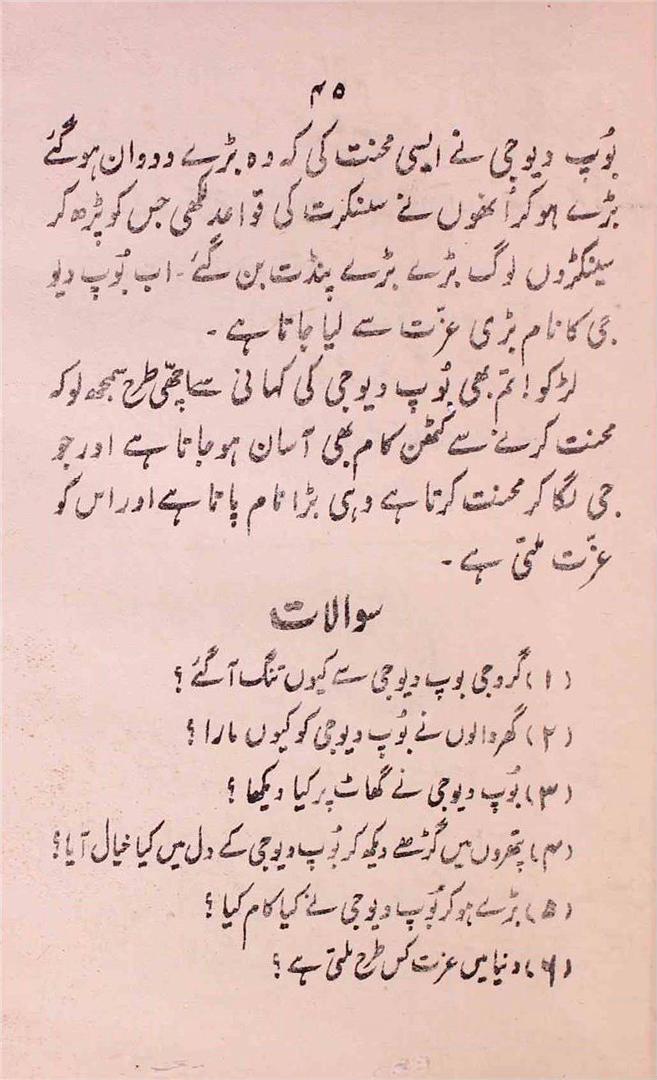 ۴۵
بُوپ دیوجی نے ایسی محنت کی کہ وہ بڑے ودوان ہو گئے
بڑے ہو کر اُنھوں نے سنسکرت کی قواعد لکھی جس کو پڑھ کر
سینکڑوں لوگ بڑے بڑے پنڈت بن گئے۔ اب بُوپ دیو
جی کا نام بڑی عزّت سے لیا جاتا ہے۔
لڑکو! تم بھی بُوپ دیوجی کی کہانی سے اچھّی طرح سمجھ لو کہ
محنت کرنے سے کٹھن کام بھی آسان ہو جاتا ہے اور جو
جی لگا کر محنت کرتا ہے وہی بڑا نام پاتا ہے اور اس کو
عزّت ملتی ہے۔
سوالات
(۱) گروجی بوپ دیوجی سے کیوں تنگ آ گئے؟
(۲) گھر والوں نے بُوپ دیوجی کو کیوں مارا؟
(۳) بُوپ دیوجی نے گھاٹ پر کیا دیکھا؟
(۴) پتھروں میں گڑھے دیکھ کر بُوپ دیوجی کے دل میں کیا خیال آیا؟
(۵) بڑے ہو کر بُوپ دیوجی نے کیا کام کیا؟
(۶) دنیا میں عزت کس طرح ملتی ہے؟